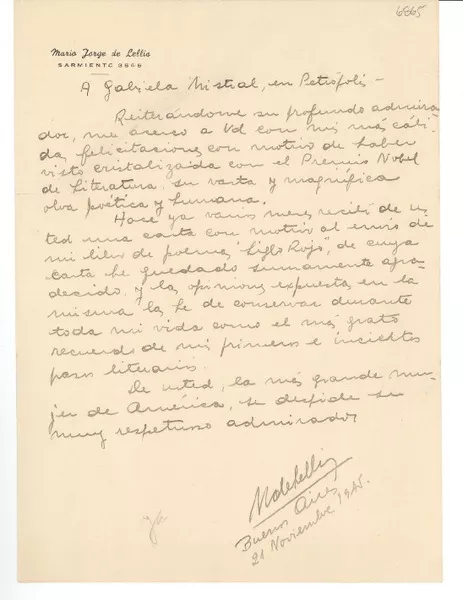 6865
Mario Jorge de Lellis
SARMIENTO 3868
A Gabriela Mistral, en Petrópolis –
Reiterándome su profundo admira-
dor, me acerco a Vd con mis más cáli-
das felicitaciones con motivo de haber
visto cristalizada con el Premio Nobel
de Literatura, su vasta y magnífica
obra poética y humana.
Hace ya varios meses recibí de us-
ted una carta con motivo al envío de
mi libro de poemas "Siglo Rojo", de cuya
carta he quedado sumamente agra-
decido, y las opiniones expuestas en la
misma las he de conservar durante
toda mi vida como el más grato
recuerdo de mis primeros e incientos
pasos literarios.
De usted, la más grande mu-
jer de América, se despide su
muy respetuoso admirador
MdeLellis
Buenos Aires
21 Noviembre 1945.